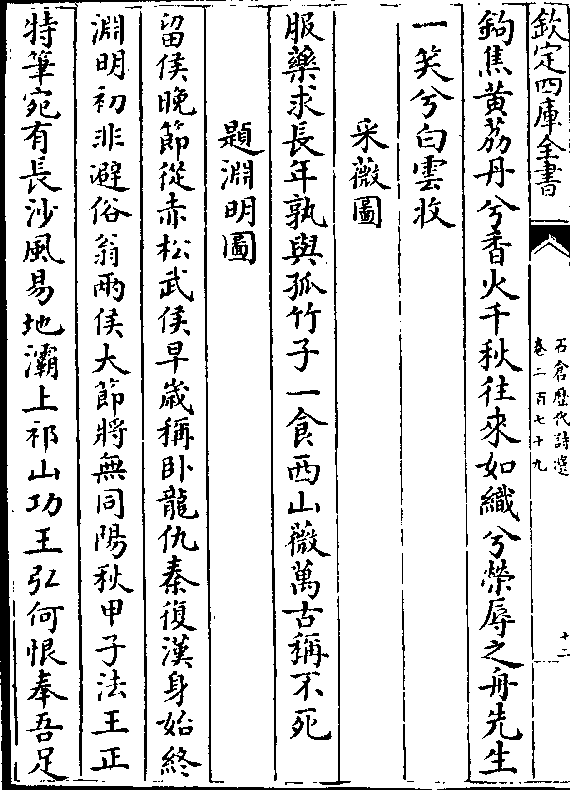 欽定四庫全書
石倉歷代詩選
卷二百七十九
十二
鉤焦黄荔丹兮香火千秋往來如織兮榮辱之舟先生
一笑兮白雲收
采薇圖
服藥求長年孰與孤竹子一食西山薇萬古稱不死
題淵明圖
留侯晚節從赤松武侯早歲稱卧龍仇秦復漢身始終
淵明初非避俗翁兩侯大節將無同陽秋甲子法王正
特筆宛有長沙風易地灞上祁山功王弘何恨奉吾足